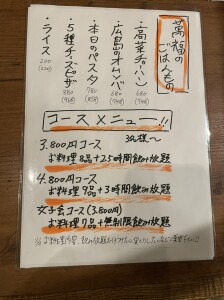 萬福の
ごはんもの
・高菜チャーハン
680
(748)
・広島のオムソバ
680
(748)
・本日のパスタ
780
(858)
・5種チーズピザ
880
(968)
・ライス
200
(220)
コースメニュー!!
3名様〜
3,800円コース
お料理8品+2.5時間飲み放題
4,800円コース
お料理9品+3時間飲み放題
女子会コース(3,800円)
お料理7品+無制限飲み放題